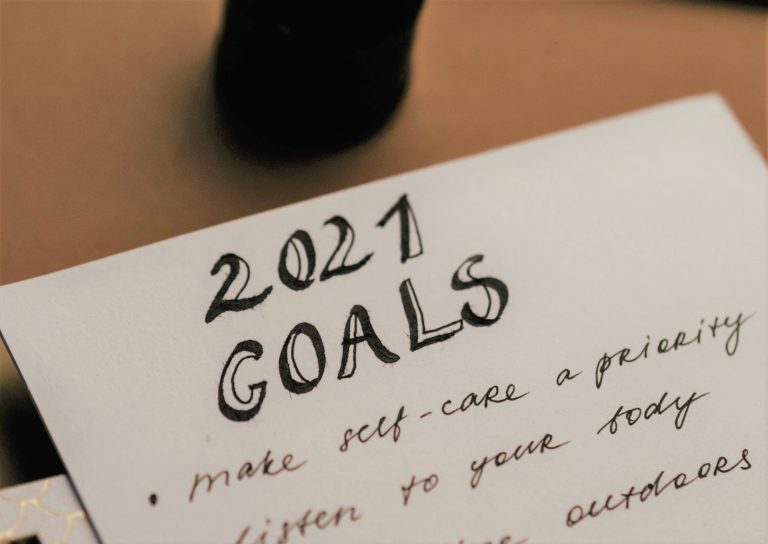 2021
GOALS
• make self-care a priority
listen to your body
outdoors